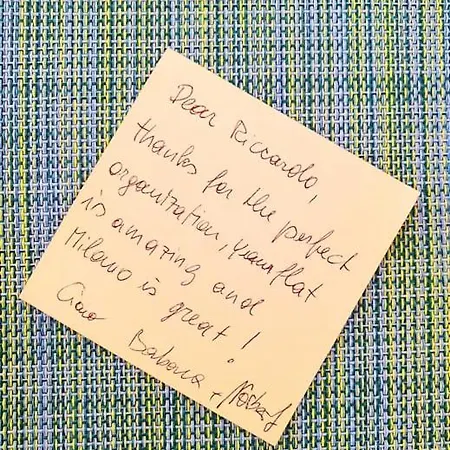 Dear Riccardo,
thanks for the perfect
organization, your flat
is amazing and
Milano is great!
Ciao
+